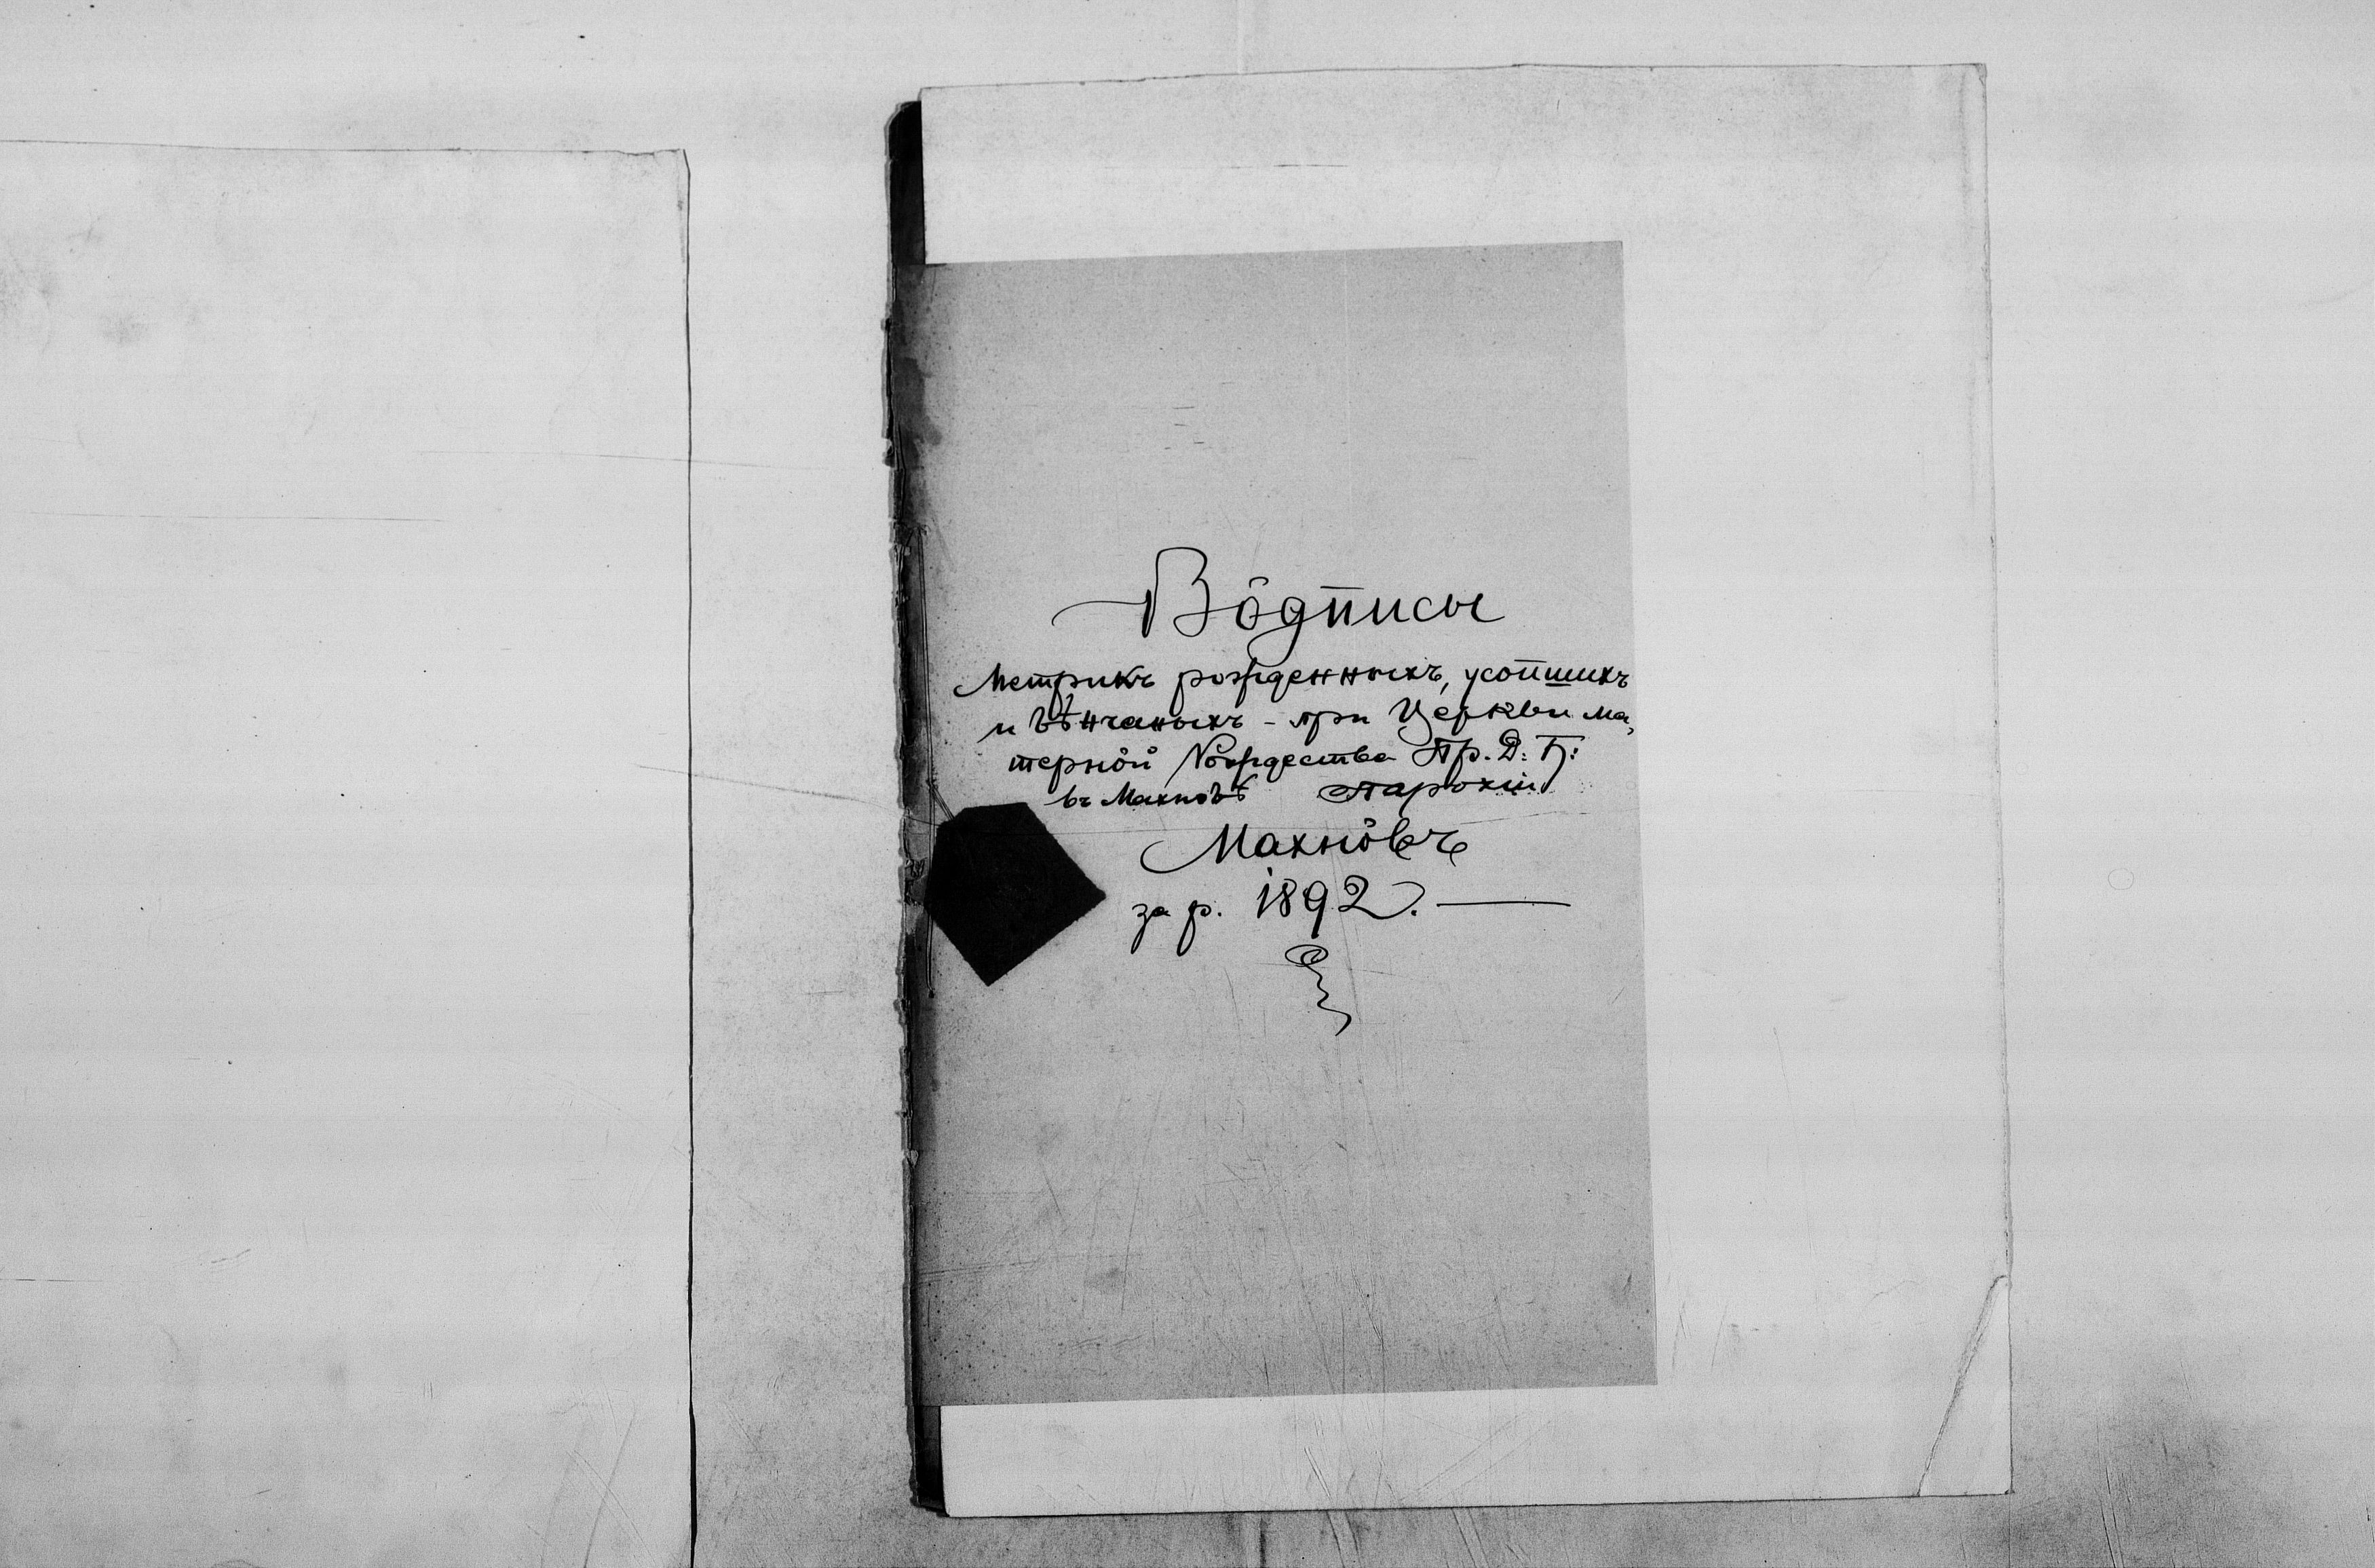 Вôдписы
Метрикъ рожденныхъ, усопшихъ
и вѣнчаныхъ - при Церкви ма„
терной Рôждества Пр. Д: Б:
въ Махновѣ Парохіи
Махнôвъ
за р. 1892.